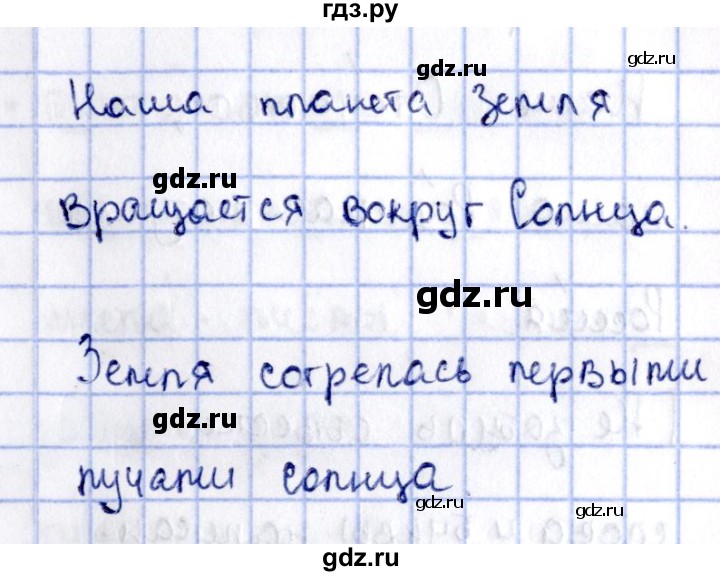 гдз.ру
gdz.ru
gdz.ru
Наша планета Земля
gdz.ru
вращается вокруг Солнца.
gdz.ru
Земля согрелась первыми
gdz.ru
лучами солнца.
gdz.ru
gdz.ru
gdz.ru